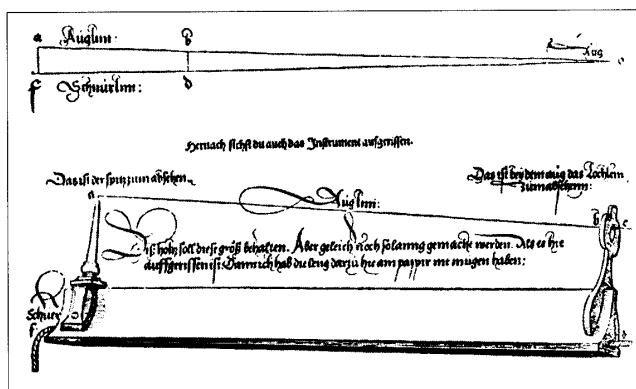 a Auglini: b Aug
c Schnurlini: d
f
Hernach sichst du auch das Instrument aufgerissen.
Das ist der spitz zum absehen. Das ist bey dem aug das Löchlein
zum absehenn:
a Auglini: b e
Diß holtz soll diese größ behalten. Aber geleich noch so lanng gemacht werden. Als es hie
auffgerissen ist: Dann ich hab die leng darzu hie am pappir nit mügen haben:
Schnur
f